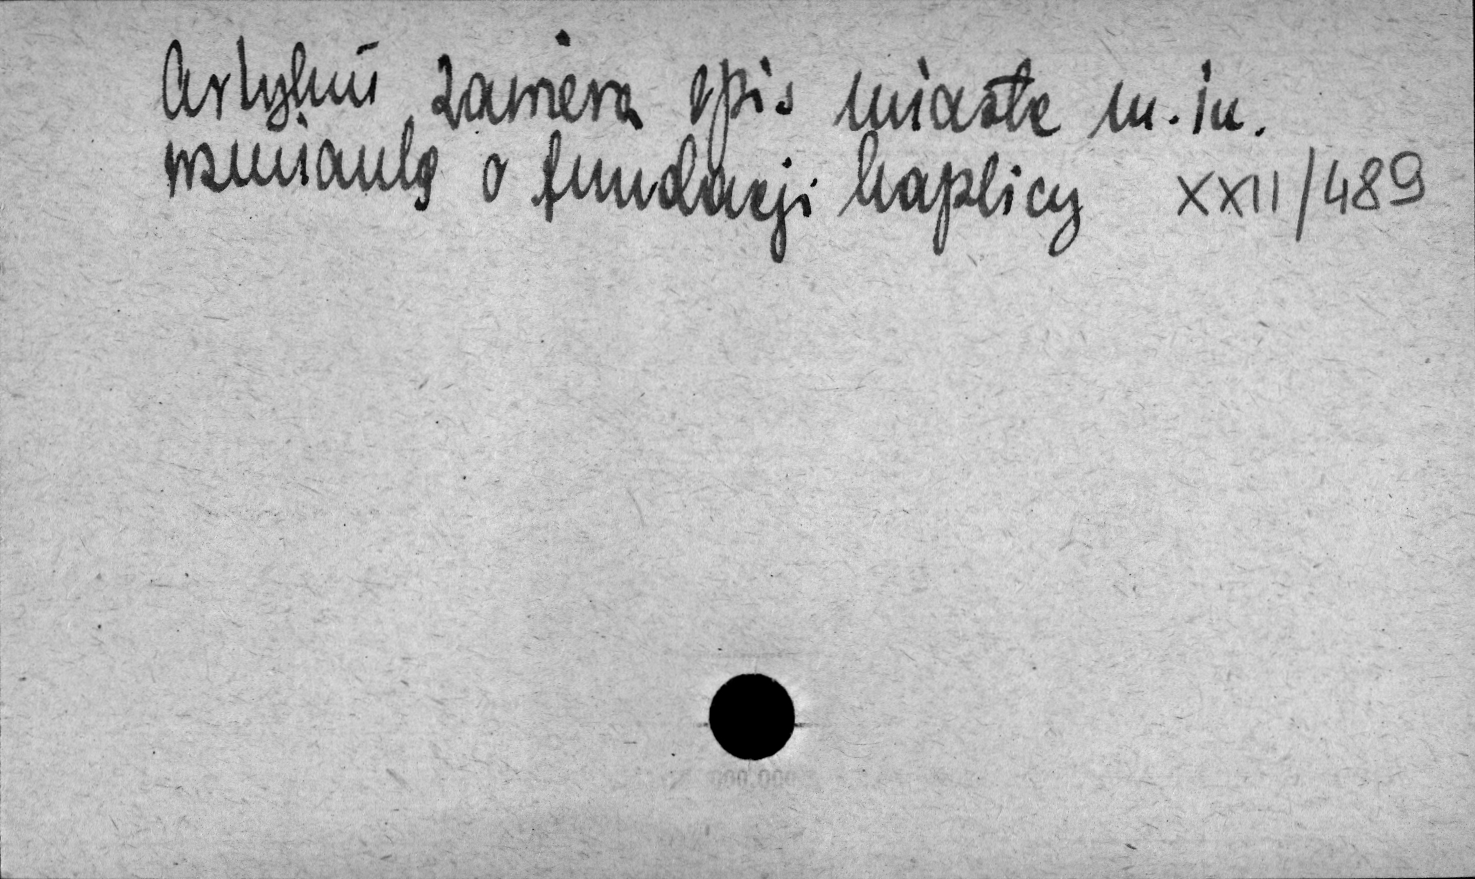 Artykuł zawiera opis miasta m.in.
wzmiankę o fundacji kaplicy XXII/489